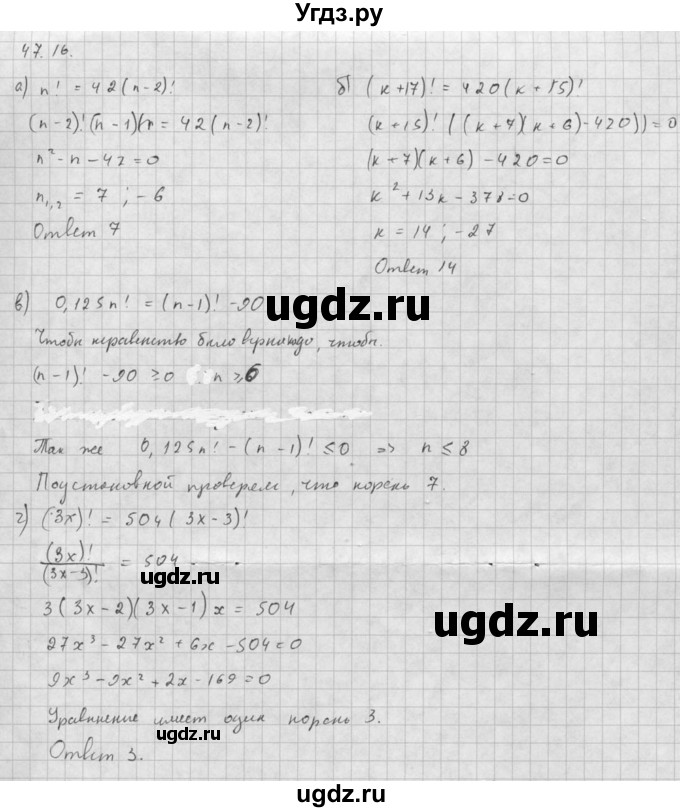 Угдз.ру
47.16.
а) n! = 42(n-2)!
(n-2)!(n-1)n = 42(n-2)!
n² - n - 42 = 0
n₁,₂ = 7 ; -6
Ответ 7
б) (к+17)! = 420(к+15)!
(к+15)!((к+7)(к+6)-420)) = 0
(к+7)(к+6) - 420 = 0
к² + 13к - 378 = 0
к = 14 ; -27
Ответ 14
в) 0,125n! = (n-1)! - 90
Чтобы неравенство было верно надо, чтобы.
(n-1)! - 90 ≥ 0 n ≥ 6
Так же 0,125n! - (n-1)! ≤ 0 ⇒ n ≤ 8
Поустановной проверем, что корень 7.
г) (3x)! = 504(3x-3)!
(3x)!/(3x-3)! = 504
3(3x-2)(3x-1)x = 504
27x³ - 27x² + 6x - 504 = 0
9x³ - 9x² + 2x - 169 = 0
Уравнинение имеет один корень 3.
Ответ 3.
ugdz.ru
ugdz.ru
ugdz.ru
ugdz.ru
ugdz.ru
ugdz.ru